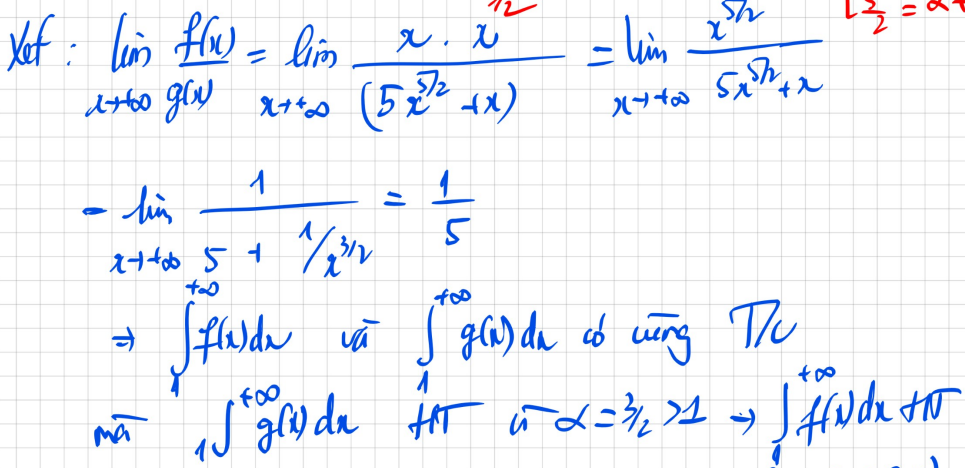 Xét : lim x→+∞ f(x)/g(x) = lim x→+∞ x . x / (5x^5/2 + x) = lim x→+∞ x^5/2 / 5x^5/2 + x
= lim x→+∞ 1 / 5 + 1/x^3/2 = 1/5
⇒ ∫ 1 +∞ f(x)dx và ∫ 1 +∞ g(x)dx có cùng T/c
mà ∫ 1 +∞ g(x)dx HT vì α = 3/2 > 1 → ∫ 1 +∞ f(x)dx HT